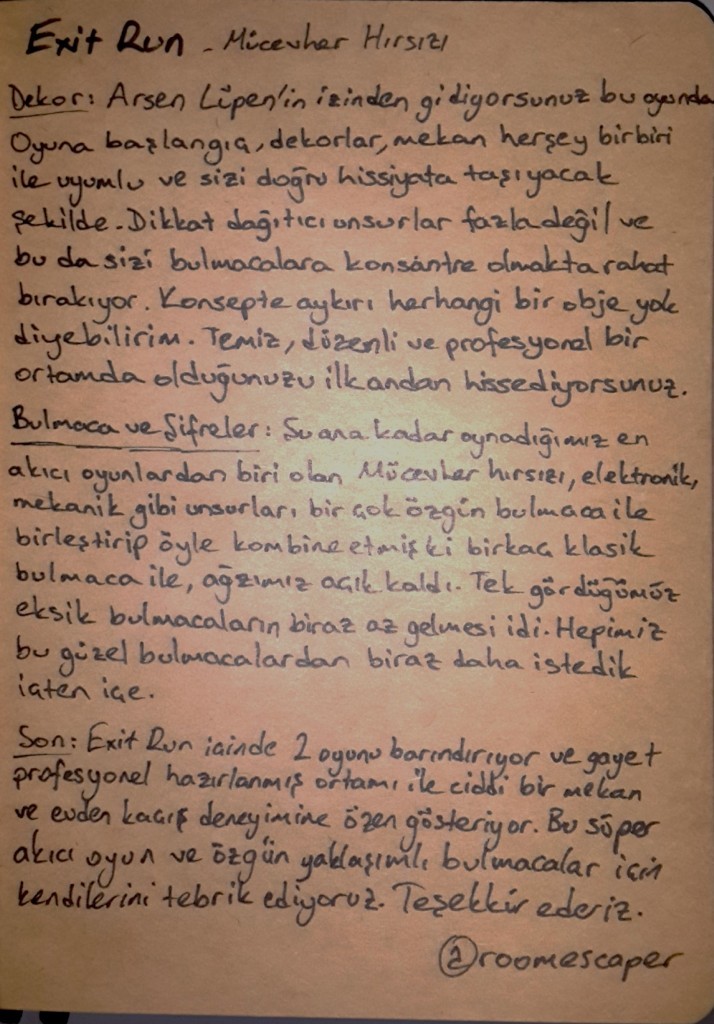 Exit Run - Mücevher Hırsızı
Dekor: Arsen Lüpen'in izinden gidiyorsunuz bu oyunda
Oyuna başlangıç, dekorlar, mekan herşey birbiri
ile uyumlu ve sizi doğru hissiyata taşıyacak
şekilde. Dikkat dağıtıcı unsurlar fazla değil ve
bu da sizi bulmacalara konsantre olmakta rahat
bırakıyor. Konsepte aykırı herhangi bir obje yok
diyebilirim. Temiz, düzenli ve profesyonel bir
ortamda olduğunuzu ilk andan hissediyorsunuz.
Bulmaca ve Şifreler: Şu ana kadar oynadığımız en
akıcı oyunlardan biri olan Mücevher hırsızı, elektronik,
mekanik gibi unsurları bir çok özgün bulmaca ile
birleştirip öyle kombine etmiş ki birkaç klasik
bulmaca ile, ağzımız açık kaldı. Tek gördüğümüz
eksik bulmacaların biraz az gelmesi idi. Hepimiz
bu güzel bulmacalardan biraz daha istedik
içten içe.
Son: Exit Run içinde 2 oyunu barındırıyor ve gayet
profesyonel hazırlanmış ortamı ile ciddi bir mekan
ve evden kaçış deneyimine özen gösteriyor. Bu süper
akıcı oyun ve özgün yaklaşımlı bulmacalar için
kendilerini tebrik ediyoruz. Teşekkür ederiz.
@roomescaper